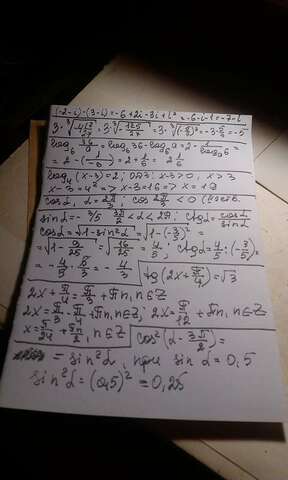 (-2-i)·(3-i)=-6+2i-3i+i²=-6-i-1=-7-i
3·∛-4 17/27=3·∛-125/27=3·∛(-5/3)³=-3·5/3=-5
log₆ 36/a=log₆36-log₆a=2-1/logₐ6=
=2-(1/-8)=2+1/8=2 1/8
log₄(x-3)=2; ОДЗ: x-3>0, x>3
x-3=4² => x-3=16 => x=19
cosα, α=2π/3, cos 2π/3<0
sinα=-3/5 3π/2<α<2π; ctgα=cosα/sinα
cosα=√1-sin²α=√1-(-3/5)²=
=√1-9/25=√16/25=4/5; ctgα=4/5:(-3/5)=
=-4/5·5/3=-4/3
tg(2x+π/4)=√3
2x+π/4=π/3+πn, n∈Z
2x=π/3-π/4+πn, n∈Z; 2x=π/12+πn, n∈Z
x=π/24+πn/2, n∈Z
cos²(α-3π/2)=
=sin²α, при sinα=0,5
sin²α=(0,5)²=0,25